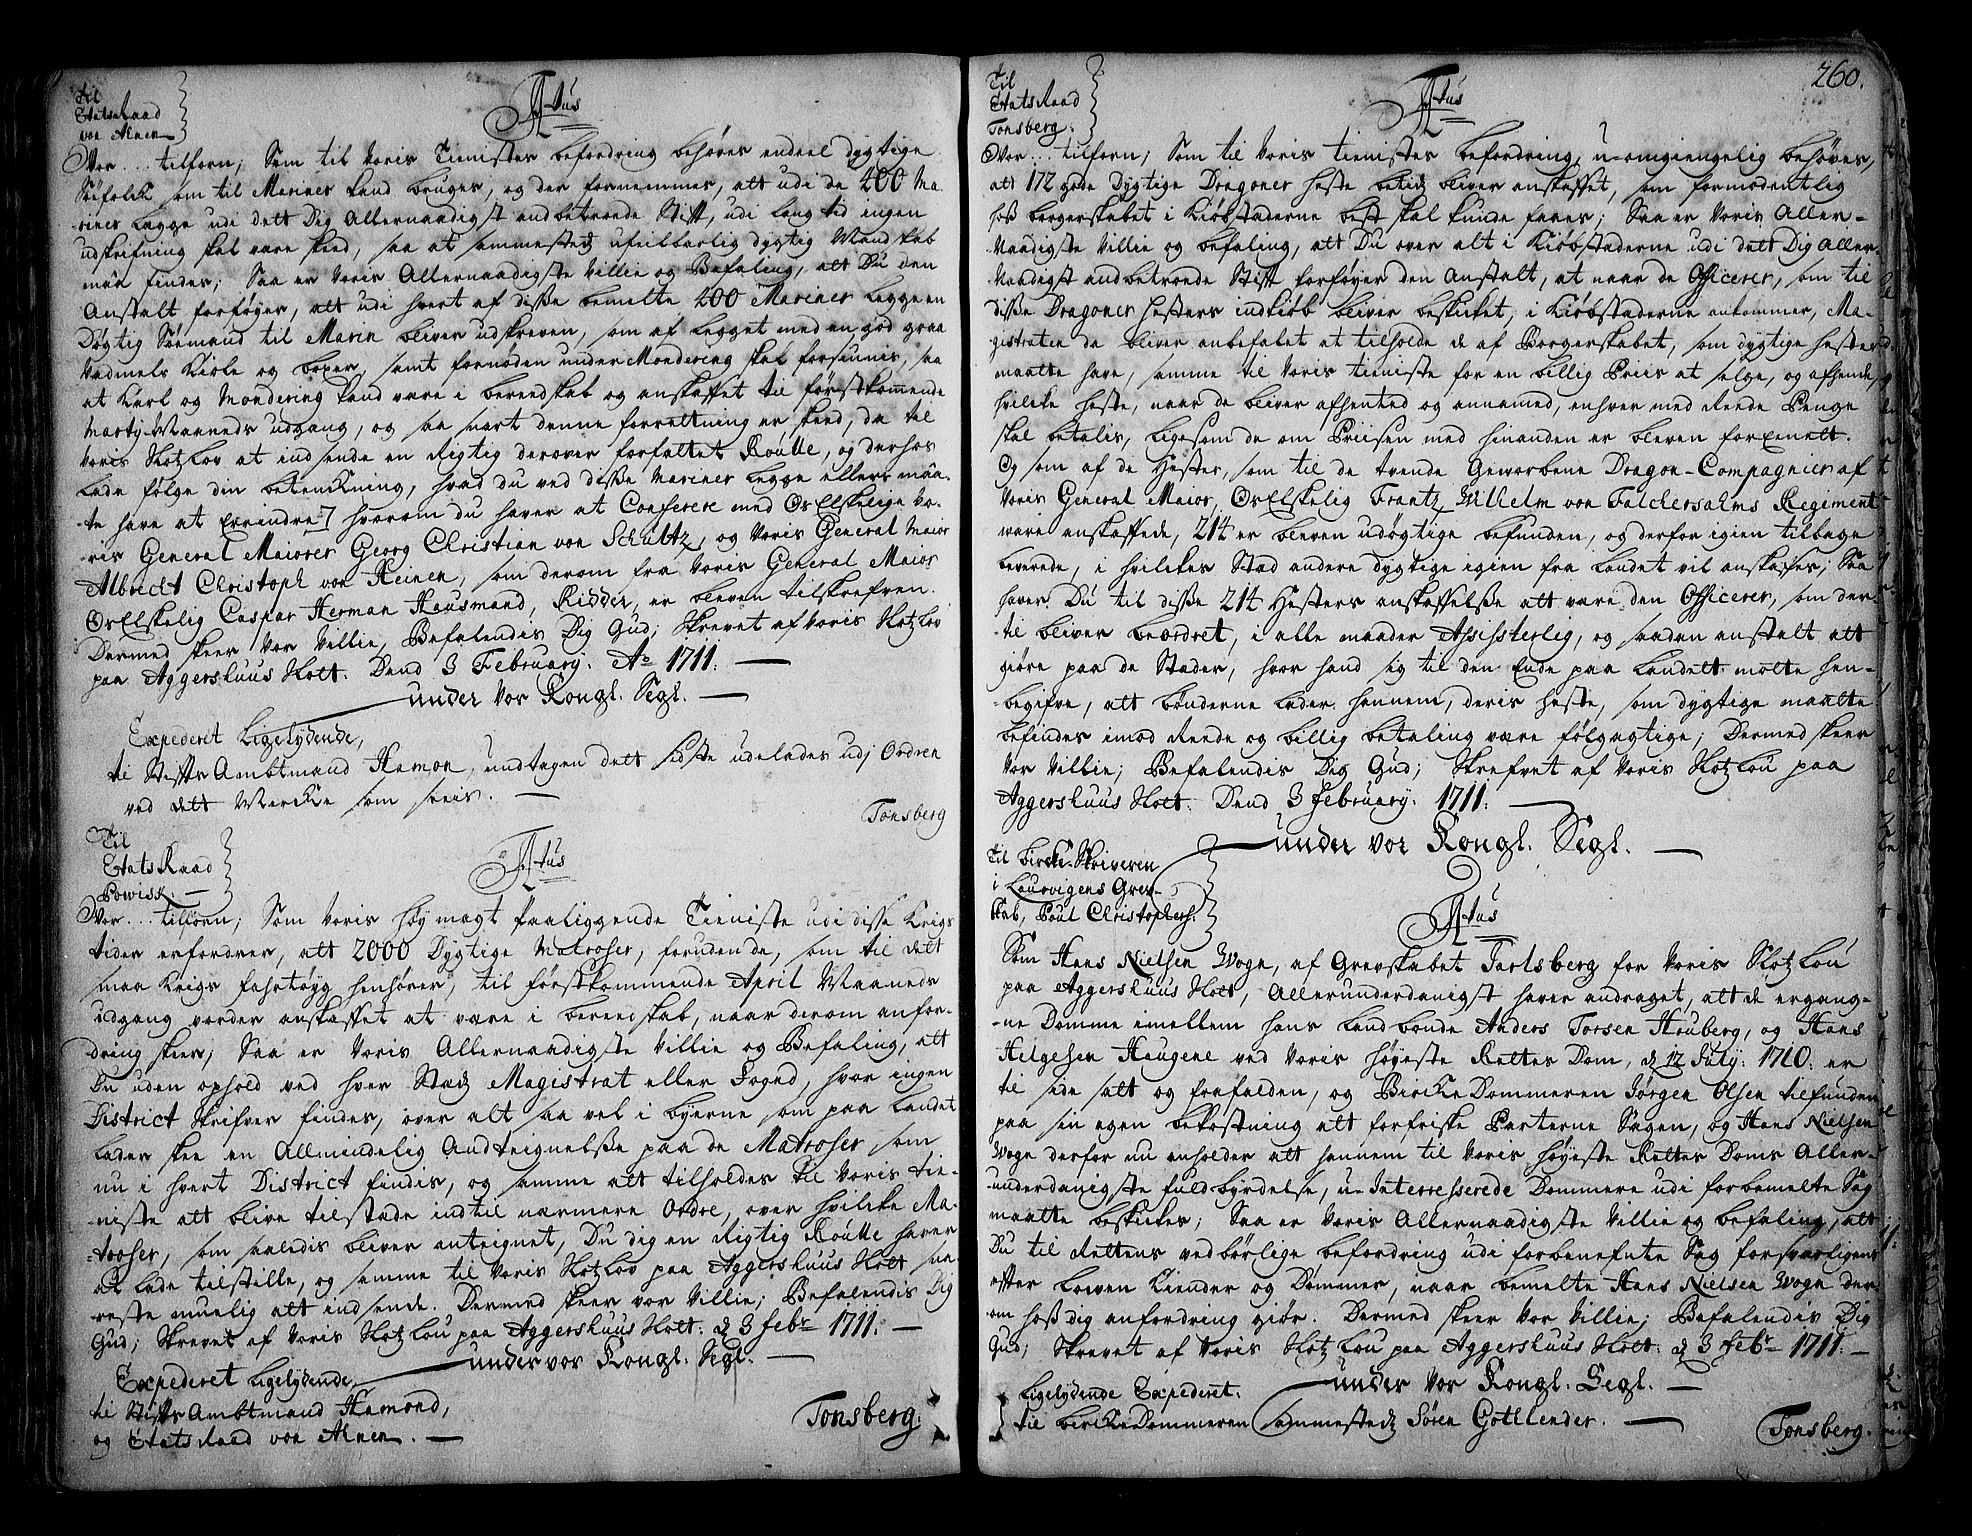 Til
Etats Raad
von Ahnen
Atus
Vor... tilforn; Som til Voris Tienistes befordring behøves endeel dygtige
Søefolck som til Mariner kand bruges, og der fornemmes, att udi de 200 Ma-
riner Legge udi dett Dig Allernaadigst andbetroede Stift, udi lang tid ingen
udskrifning skal være skeed, saa at sammestedz ufeilbarlig dygtig Mandskab
maa findes; Saa er Voris Allernaadigste Villie og Befaling, att Du den
Anstalt forføyer, att udi hvert af disse bemelte 200 Mariner Legge en
Dygtig Søemand til Marin bliver udskreven, som af Legget med en god graa
Vadmels Kiole og boxer, samt fornøden under Mondering skal forsiunis, saa
at Karl og Mondering kand være i bereedskab og anskaffet til førstkommende
Martij Maaneds udgang, og saa snart denne forretning er skeed, da til
Voris Slotzlov at indsende en Rigtig derover forfattet Roulle, og derhos
lade følge din betenckning, hvad du ved disse Mariner Legge ellers maa-
te have at Erindre, hvorom du haver at Conferere med Os Elskelige Vo-
ris General Maiorer Georg Christian von Schultz, og Voris General Maior
Albrecht Christoph von Heinen, som derom fra Voris General Maior
Os Elskelig Caspar Herman Hausmand, Ridder, er bleven tilskrefven.
Dermed skeer Vor Villie, Befalendis Dig Gud; Skrevet af Voris Slotzlov
paa Aggershuus Slott. Dend 3 February. Ao 1711. —
under Vor Kongl. Segl. —
Expederet Ligelydende,
til Stifts Ambtmand Hamon, undtagen dett sidste udelades udj Ordren
ved dett Mercke som sees. —
Tonsberg
Til
Etats Raad
Powisk. —
Atus
Vor... tilforn; Som Voris høy magt Paaliggende Tieniste udi disse Krigs
tider erfordrer, att 2000 Dygtige Matroser, foruden de, som til dett
smaa Krigs fahrtøyg henhører, til førstkommende April Maaneds
udgang vorder anskaffet at være i bereedskab, naar derom anfor-
dring skeer; Saa er Voris Allernaadigste Villie og Befaling, att
Du uden ophold ved hver Stadz Magistrat eller Fogd, hvor ingen
District Skrifver findes, over alt saa vel i byerne som paa landet
lader skee en Allmindelig Andteignelse paa de Matroser som
nu i hvert District findis, og samme att tilholdes til Voris tie-
niste att blive tilstæde indtil nærmere Ordre, over hvilcke Ma-
troser, som saaledis bliver anteignet, Du dig en Rigtig Roulle haver
at lade tilstille, og samme til Voris Slotzlov paa Aggershuus Slott saa
reste muelig att indsende. Dermed skeer vor Villie; Befalendis Dig
Gud; Skrevet af Voris Slotzlou paa Aggershuus Slott. d 3 febr 1711. —
under vor Kongl. Segl. —
Expederet Ligelydende,
til Stifts Ambtmand Hamond,
og Etats Raad von Ahnen. —
Tonsberg.
260.
Til
Etats Raad
Tonsberg.
Atus
Vor... tilforn; Som til Voris tienistes befordring, u-omgiengelig behøves,
att 172 gode Dygtige Dragoner Heste betids bliver anskaffet, som formodentlig
hoss borgerskabet i Kiøbstæderne best skal kunde faaes; Saa er Voris Aller-
Naadigste Villie og befaling, att Du over alt i Kiøbstæderne udi dett Dig Aller-
Naadigst andbetroede Stift forføyer den Anstalt, at naar de Officerer, som til
disse Dragoner hesters indkiøb bliver beskicket, i Kiøbstæderne ankommer, Ma-
gistraten da bliver anbefalet at tilholde de af Borgerskabet, som dygtige heste
maatte have, samme til Voris tieniste for en billig Priis at selge, og afhende,
hvilcke heste, naar de bliver afhented og annamed, enhver med Reede Penge
skal betalis, ligesom de om Priisen med hinanden er bleven foreenett.
Og som af de Hester, som til de tvende Geworbene Dragon-Compagnier af
Voris General Maior, Os Elskelig Frantz Wilhelm von Falchersalms Regiment
vare anskaffede, 214 er bleven udøgtige befunden, og derfor igien tilbage
leverede, i hvilckes Stæd andere dygtige igien fra landet vil anskaffes; Saa
haver Du til disse 214 Hesters anskaffelse att være den Officerer, som der-
til bliver beordret, i alle maader Assisterlig, og saadan anstalt att
giøre paa de Stæder, hvor hand sig til den Ende paa landett motte hen-
begifve, att bønderne lader hannem, deris heste, som dygtige maatte
befindes imod Reede og billig betaling være følgagtige; Dermed skeer
Vor Villie; Befalendis Dig Gud; Skrefvet af Voris Slotzlou paa
Aggershuus Slott. Dend 3 February. 1711. —
under vor Kongl. Segl. —
Til Bircke-Skriveren
i Lourvigens Grev-
skab, Poul Christophers.
Atus
Som Hans Nielsen Wogn, af Grevskabet Jarlsberg for Voris Slotzlou
paa Aggershuus Slott, Allerunderdanigst haver andraget, att de ergang-
ne Domme imellem hans landbonde Anders Torsen Hauberg, og Hans
Helgesen Haugene ved Voris høyeste Rettes Dom, d 12 July: 1710. er
til side satt og frafalden, og Bircke Dommeren Jørgen Olsen tilfunden
paa sin egen bekostning att forfriske Parterne Sagen, og Hans Nielsen
Wogn derfor nu anholder att hannem til Voris høyeste Rettes Doms Aller-
underdanigste fuldbyrdelse, u-Interresserede Dommere udi forbemelte Sag
maatte beskickes; Saa er Voris Allernaadigste Villie og befaling, att
Du til Rettens vedbørlige befordring udi forbenefnte Sag forsvarligens
efter Lowen Kiender og Dømmer, naar bemelte Hans Nielsen Wogn der-
om hoss dig anfordring giør. Dermed skeer Vor Villie; Befalendis Dig
Gud; Skrevet af Voris Slotzlou paa Aggershuus Slott. d 3 febr 1711. —
under Vor Kongl. Segl. —
Ligelydende Expederet.
til bircke Dommeren sammestedz Søren Gottlender. —
Tonsberg.